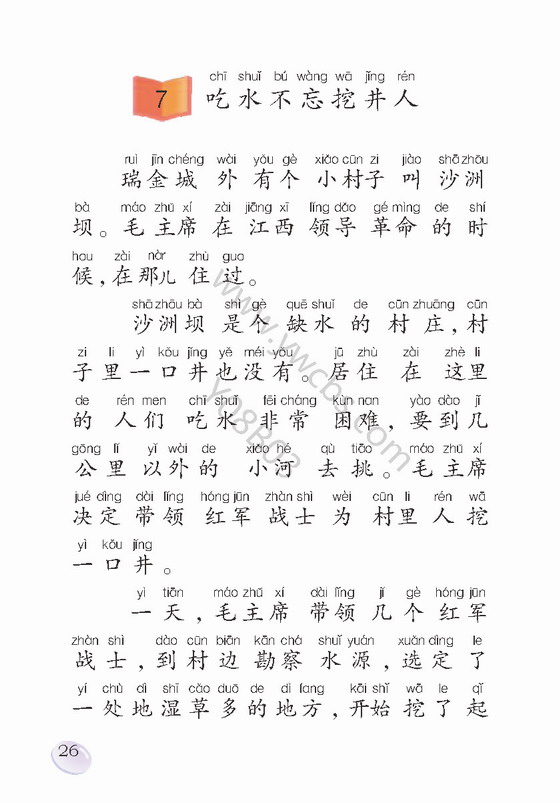 chī shuǐ bú wàng wā jǐng rén
7 吃水不忘挖井人
ruì jīn chéng wài yǒu gè xiǎo cūn zi jiào shā zhōu
瑞金城 外 有个 小村子 叫 沙洲
bà máo zhǔ xí zài jiāng xī lǐng dǎo gé mìng de shí
坝。毛主席在江西领导革命的时
hou zài nàr zhù guo
候,在那儿住过。
shā zhōu bà shì gè quē shuǐ de cūn zhuāng cūn
沙洲坝 是个 缺水 的 村庄,村
zi li yì kǒu jǐng yě méi yǒu jū zhù zài zhè li
子里一口井也没有。居住在这里
de rén men chī shuǐ fēi cháng kùn nan yào dào jǐ
的人们吃水非常困难,要到几
gōng lǐ yǐ wài de xiǎo hé qù tiāo máo zhǔ xí
公里以外的小河去挑。毛主席
jué dìng dài lǐng hóng jūn zhàn shì wèi cūn li rén wā
决定 带领 红军 战士 为 村里人挖
yì kǒu jǐng
一口井。
yì tiān máo zhǔ xí dài lǐng jǐ gè hóng jūn
一天,毛主席带领几个红军
zhàn shì dào cūn biān kān chá shuǐ yuán xuǎn dìng le
战士,到村边勘察水源,选定了
yí chù dì shī cǎo duō de dì fang kāi shǐ wā le qǐ
一处地湿草多的地方,开始挖了起
26
www.ywcbs.com